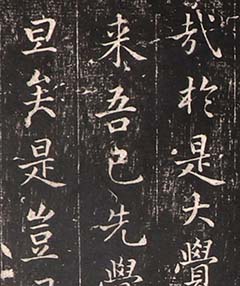 哉於是大覺
来吾已先學
旦矣是豈